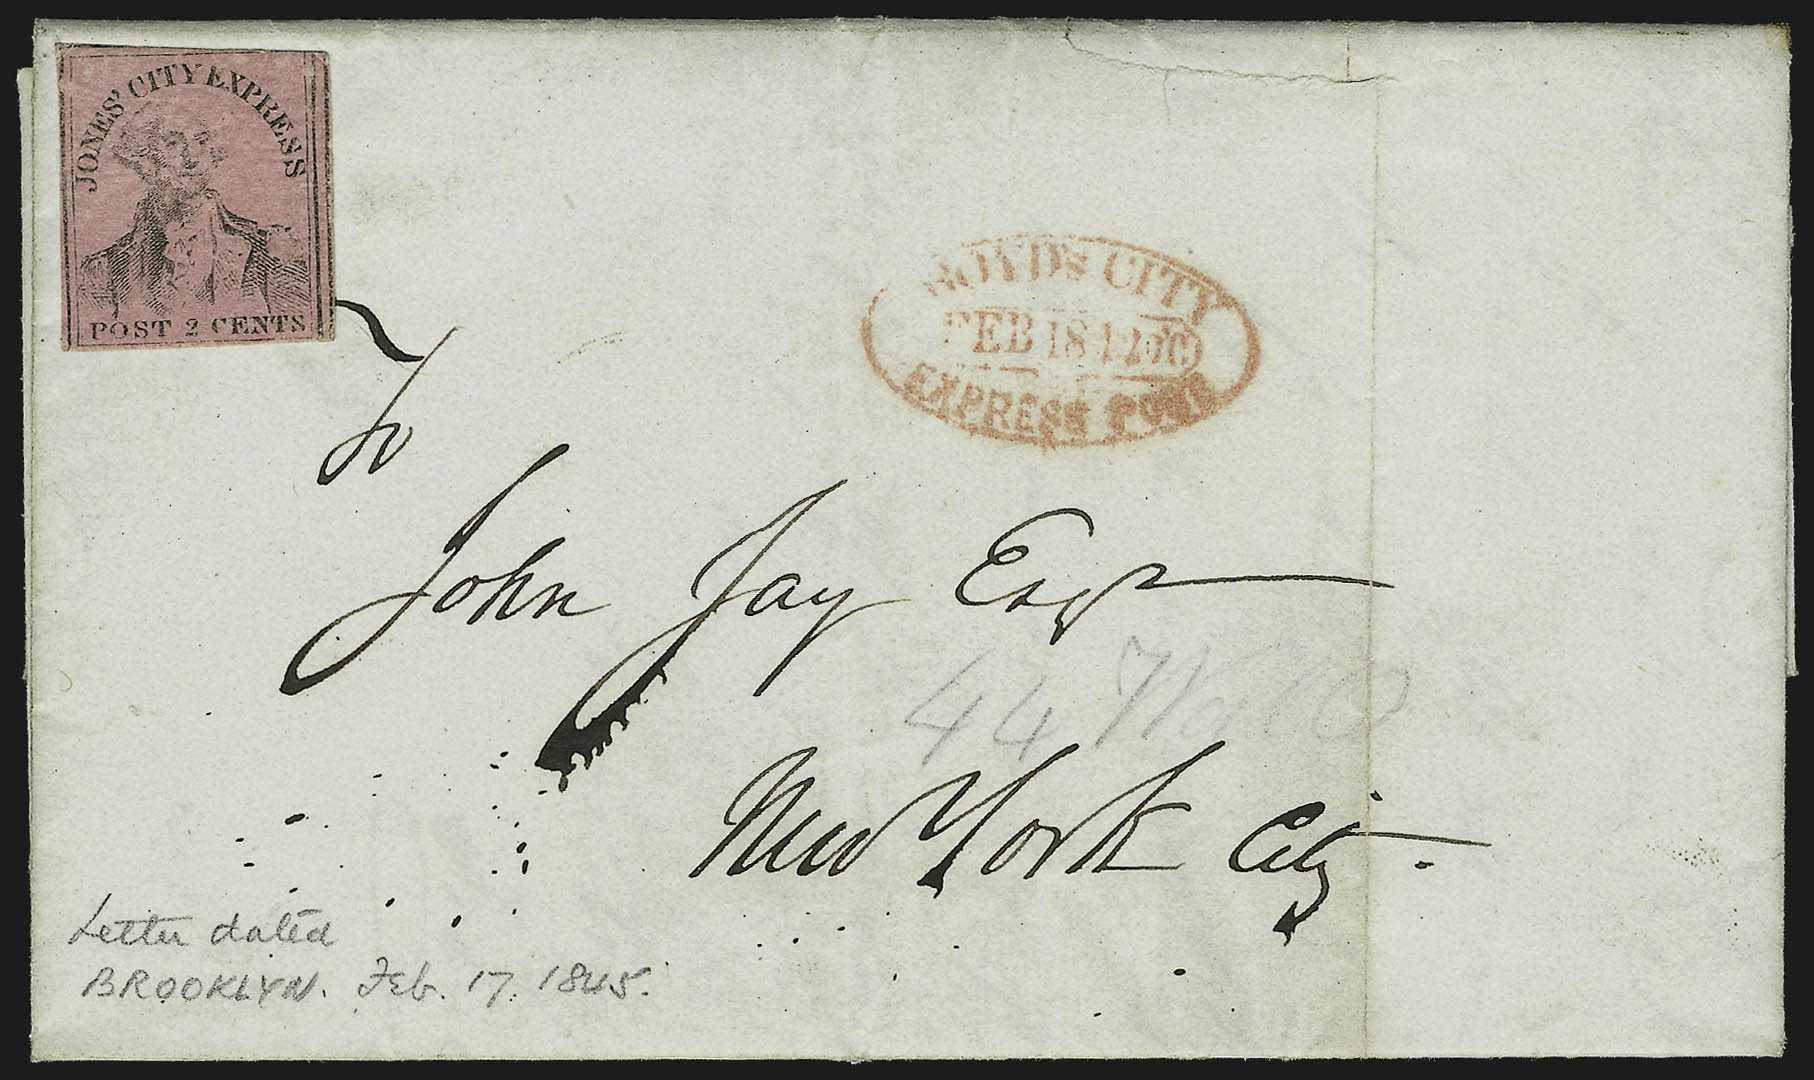 JONES' CITY EXPRESS
POST 2 CENTS
BOYD'S CITY
FEB 18
EXPRESS POST
To
John Jay Esqr
44
New York City.
Letter dated
BROOKLYN. Feb. 17. 1845.